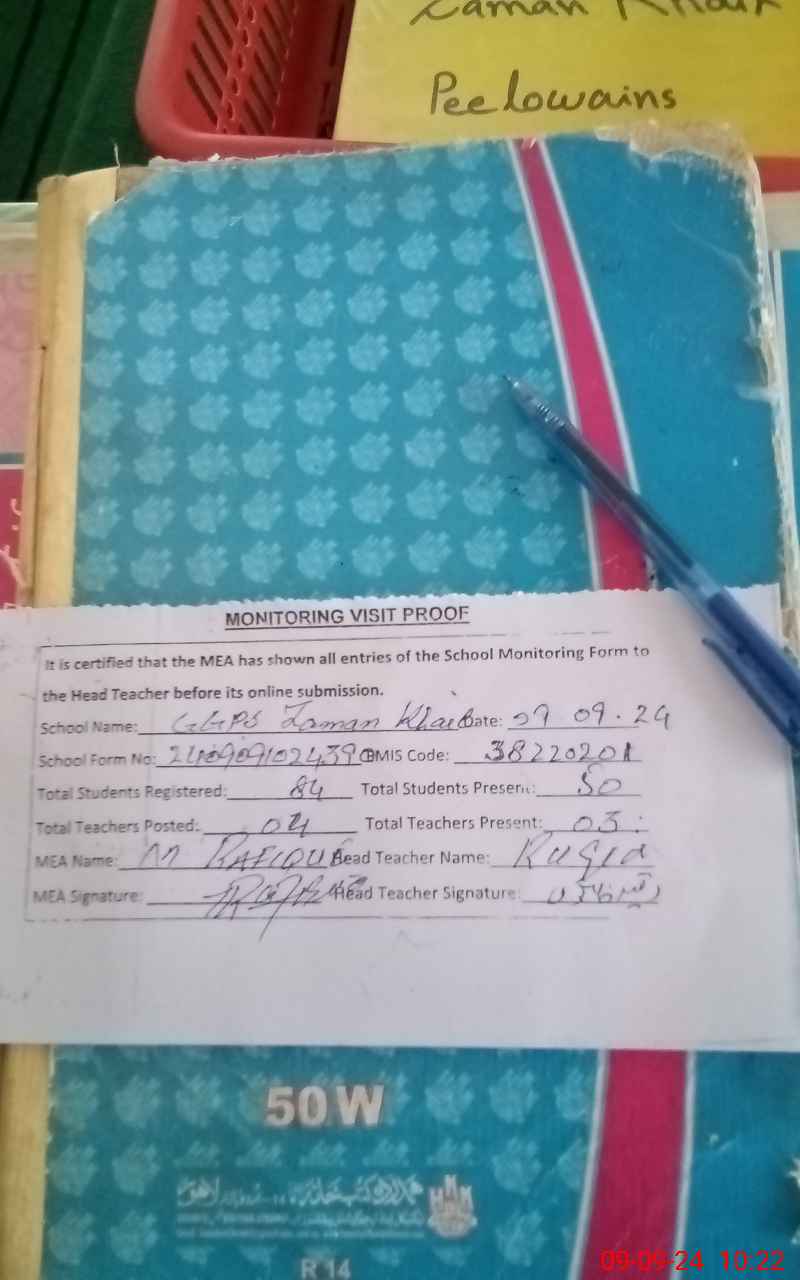 Zaman Khail
Peelowains
MONITORING VISIT PROOF
It is certified that the MEA has shown all entries of the School Monitoring Form to
the Head Teacher before its online submission.
School Name: GGPS Zaman Khail Date: 09 09.24
School Form No: 240909102439 EMIS Code: 38220201
Total Students Registered: 84 Total Students Present: 50
Total Teachers Posted: 04 Total Teachers Present: 03
MEA Name: M RAFIQUE Head Teacher Name: Ruqia
MEA Signature: Head Teacher Signature:
50 W
R 14
09-09-24 10:22